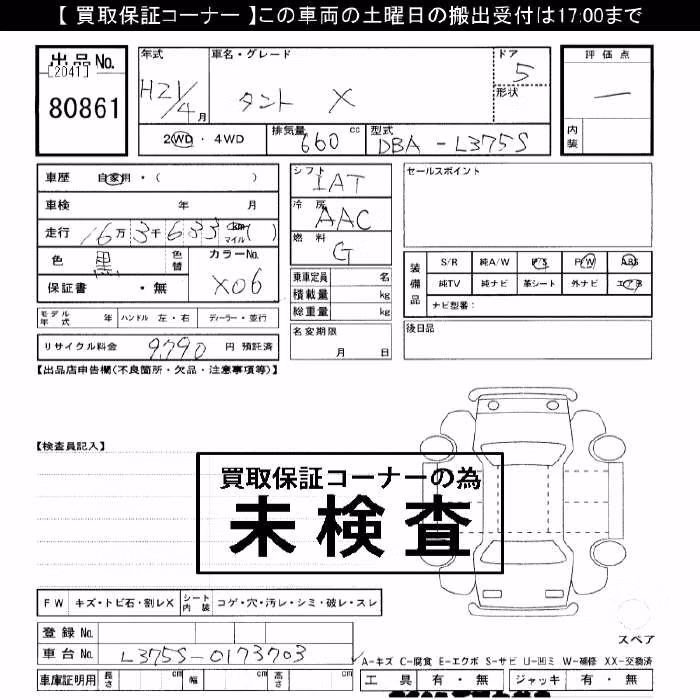 【 買取保証コーナー 】この車両の土曜日の搬出受付は17:00まで
出品No. 年式 車名・グレード ドア 評価点
[2041]
80861 H21/4月 タント X 5 形状 一
2WD・4WD 排気量 660 cc 型式 DBA-L375S 内装
車歴 自家用・( ) シフト IAT セールスポイント
車検 年 月 冷房 AAC
走行 16万3千633km マイル ( ) 燃料 G
色 黒 色替 カラーNo. X06
保証書 ・ 無
乗車定員 名
積載量 kg
総重量 kg
装備品 S/R 純A/W P/S P/W ABS
純TV 純ナビ 革シート 外ナビ エアB
ナビ型番:
モデル年式 年 ハンドル 左・右 ディーラー・並行 名変期限 月 日 後日品
リサイクル料金 9,790 円 預託済
【出品店申告欄(不良箇所・欠品・注意事項等)】
【検査員記入】
買取保証コーナーの為
未検査
FW キズ・トビ石・割レX シート内装 コゲ・穴・汚レ・シミ・破レ・スレ
登録No.
スペア
車台No. L375S-0173703
A-キズ C-腐食 E-エクボ S-サビ U-凹ミ W-補修 XX-交換済
車庫証明用 長さ cm 幅 cm 高さ cm 工具 有・無 ジャッキ 有・無